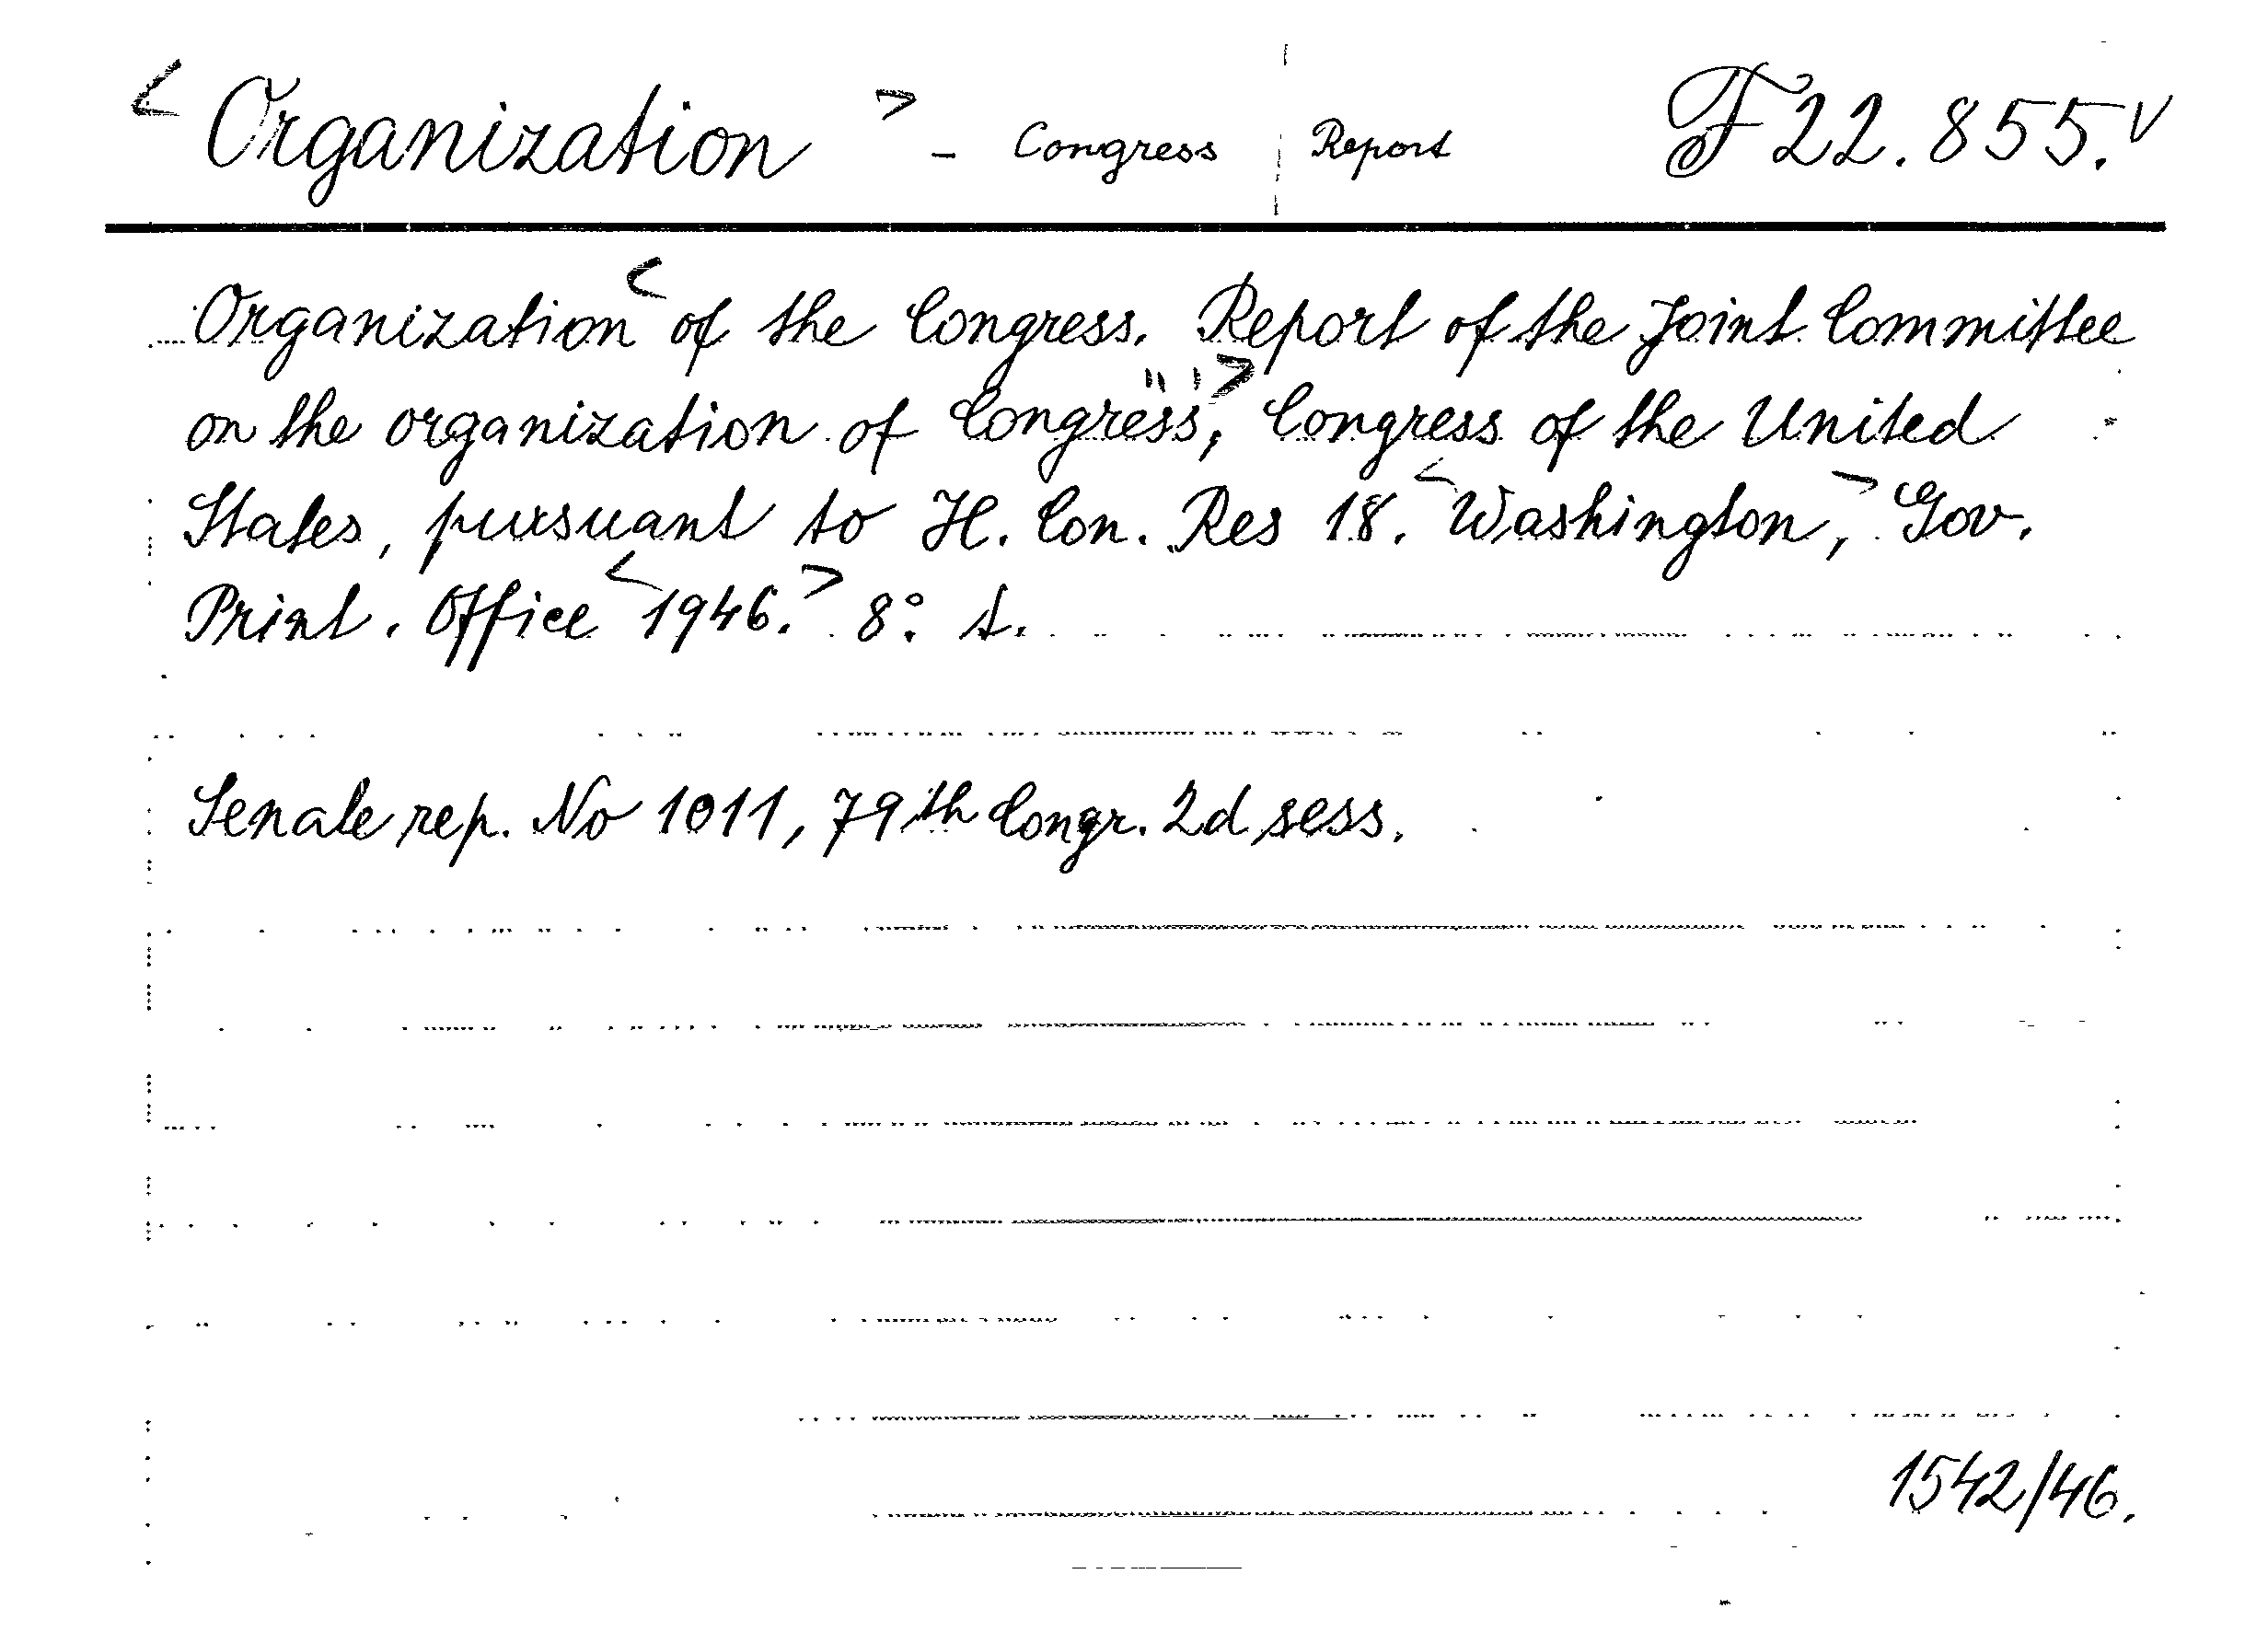 < Organization > - Congress Report F 22.855.v
Organization < of the Congress. Report of the Joint Committee
on the organization of Congress, > Congress of the United
States, pursuant to H. Con. Res 18. < Washington, > Gov.
Print. Office < 1946. > 8° t.
Senate rep. No 1011, 79th Congr. 2d sess.
1542/46.